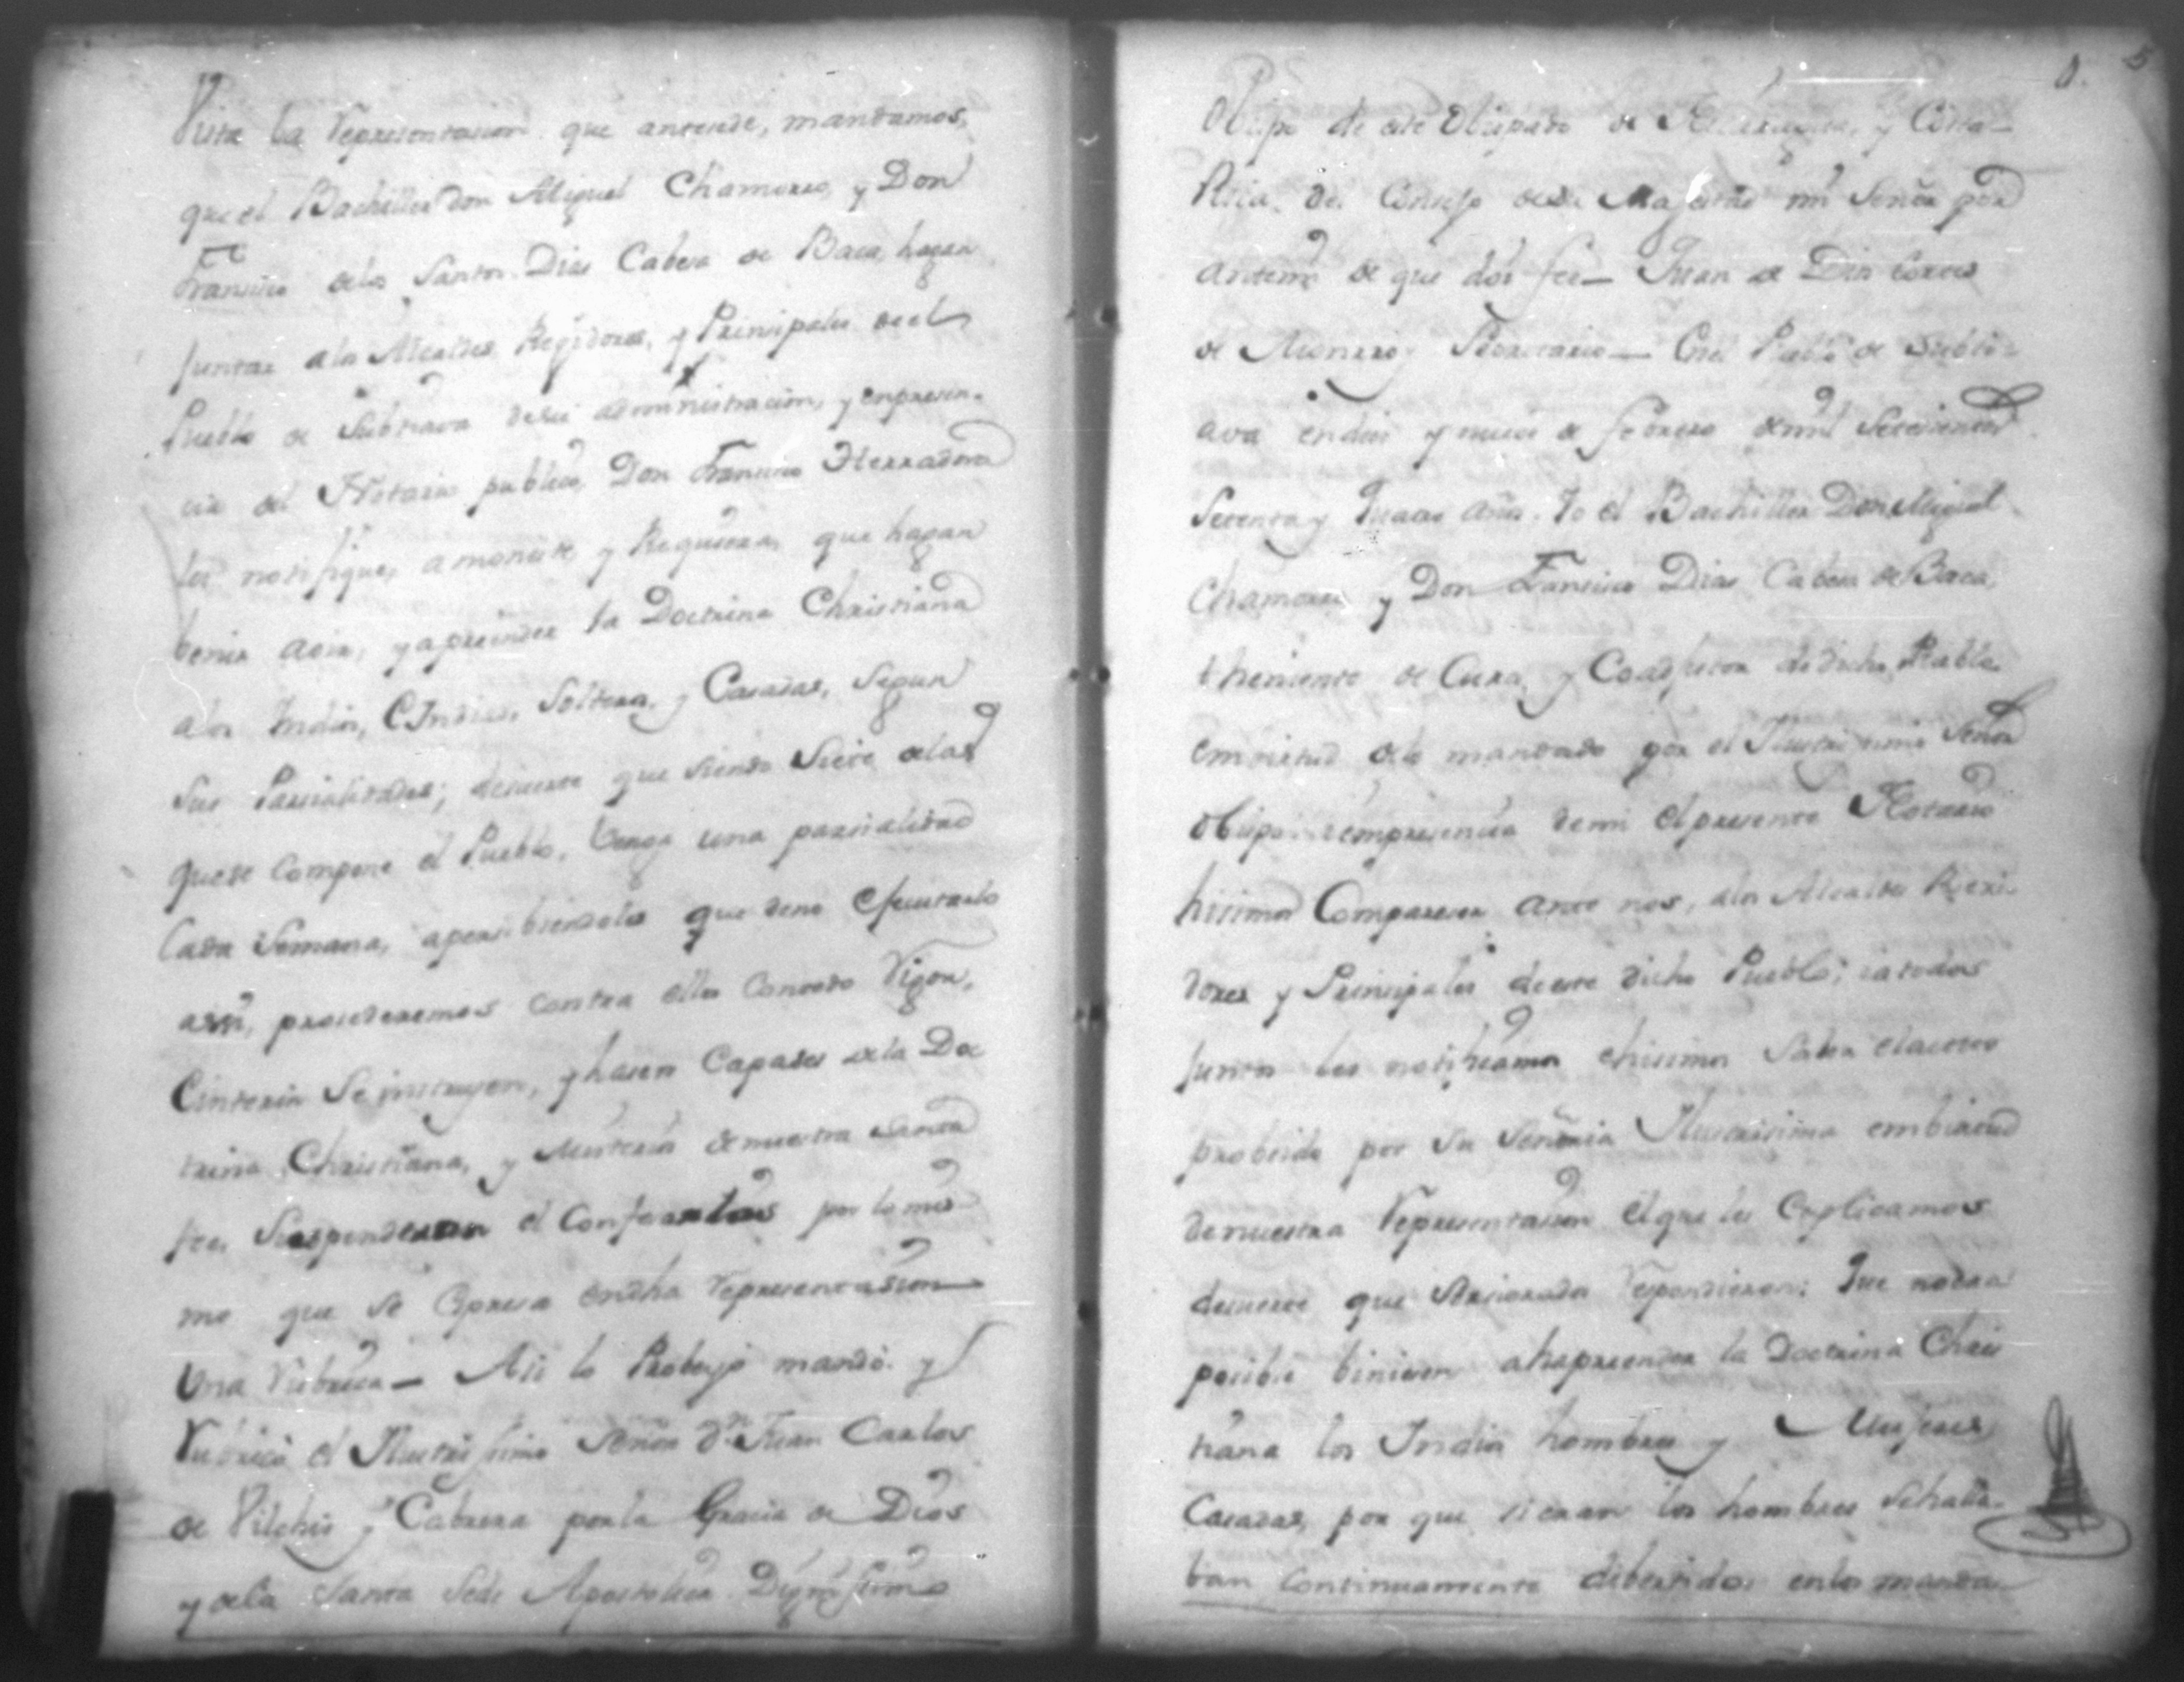 Vista la Representacion que antecede, mandamos,
que el Bachiller Don Miguel Chamorro, y Don
Francisco delos Santos Dias Cabesa de Baca, hagan
juntar alos Alcaldes, Regidores, y Principales de el
Pueblo de Subtiava desu administracion, y enpresen-
cia del Notario publico, Don Francisco Herradora
les notifique, amoneste, y Requiera, que hagan
benir aoir, y apreender la Doctrina Christiana
alos Indios, e Indias, Solteras, y Casadas, Segun
Sus Parcialidades; desuerte que siendo Siete delas
quese Compone el Pueblo, Venga una parcialidad
Cada Semana, apersibiendoles que deno efecutarlo
assi, procederemos contra ellos Contodo Rigor,
einterin Se instruyen, y hasen Capases dela Doc
trina Christiana, y Misterios denuestra Santa
fee, Suspenderan el Confesarlos por lo mis
mo que se Espresa endha Representasion
Una Rubrica — Asi lo Probeyò mandò y
Rubricò el Illustrissimo Señor Dn. Juan Carlos
de Vilches y Cabrera porla Gracia de Dios
y dela Santa Sede Apostolica Dignissimo
5
Obispo de este Obispado de Nicaragua, y Costa-
Rica, del Consejo desu Magestad mi Señor por
antemi de que doi fee — Juan de Dios Cortes
de Monrroy Secretario — Enel Pueblo de Subti-
ava endies y nueve de febrero demil Setecientos
Setenta y quatro años. Yo el Bachiller Don Miguel
Chamorro y Don Francisco Dias Cabesa de Baca,
theniente de Cura, y Coadjutor de dicho Pueblo
emvirtud delo mandado por el Illustrissimo Señor
Obispo iempresencia demi el presente Notario
hisimos Compareser ante nos, alos Alcaldes Rexi-
dores y Principales deeste dicho Pueblo; iatodos
juntos les notificamos ehisimos Saber elaucto
probeido por Su Señoria Illustrisima embirtud
denuestra Representasion elque les Explicamos
desuerte que respondieron: Que nodra
posible biniesen ahapreender la Doctrina Chris
tiana los Indios hombres y Mujeres
Casadas, por que si eran los hombres Sehalla-
ban Continuamente dibertidos enlos manda-